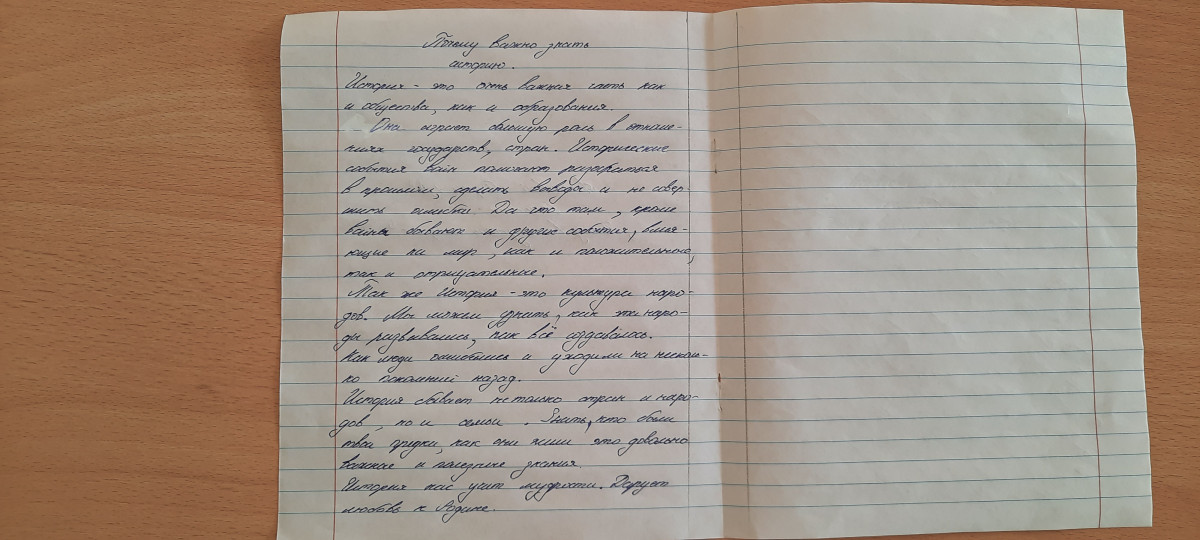 Почему важно знать
историю.
История - это очень важная часть как
и общества, как и образования.
Она играет большую роль в отноше-
ниях государств, стран. Исторические
события войн помогают разобраться
в прошлом, сделать выводы и не совер-
шить ошибки. Да что там, кроме
войны бывают и другие события, влия-
ющие на мир, как и положительное,
так и отрицательные.
Так же История - это культура наро-
дов. Мы можем узнать, как эти наро-
ды развивались, как всё создавалось.
Как люди ошиблись и уходили на несколь-
ко поколений назад.
История бывает не только стран и наро-
дов, но и семьи. Знать, кто были
твои предки, как они жили это довольно
важные и полезные знания.
История нас учит мудрости. Дарует
любовь к Родине.